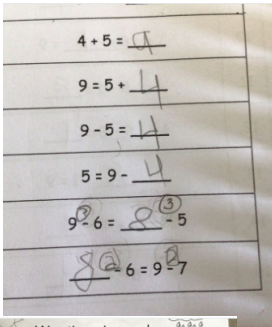 4 + 5 = 9
9 = 5 + 4
9 - 5 = 4
5 = 9 - 4
③
9 - 6 = 8 - 5
8 - 6 = 9 - 7